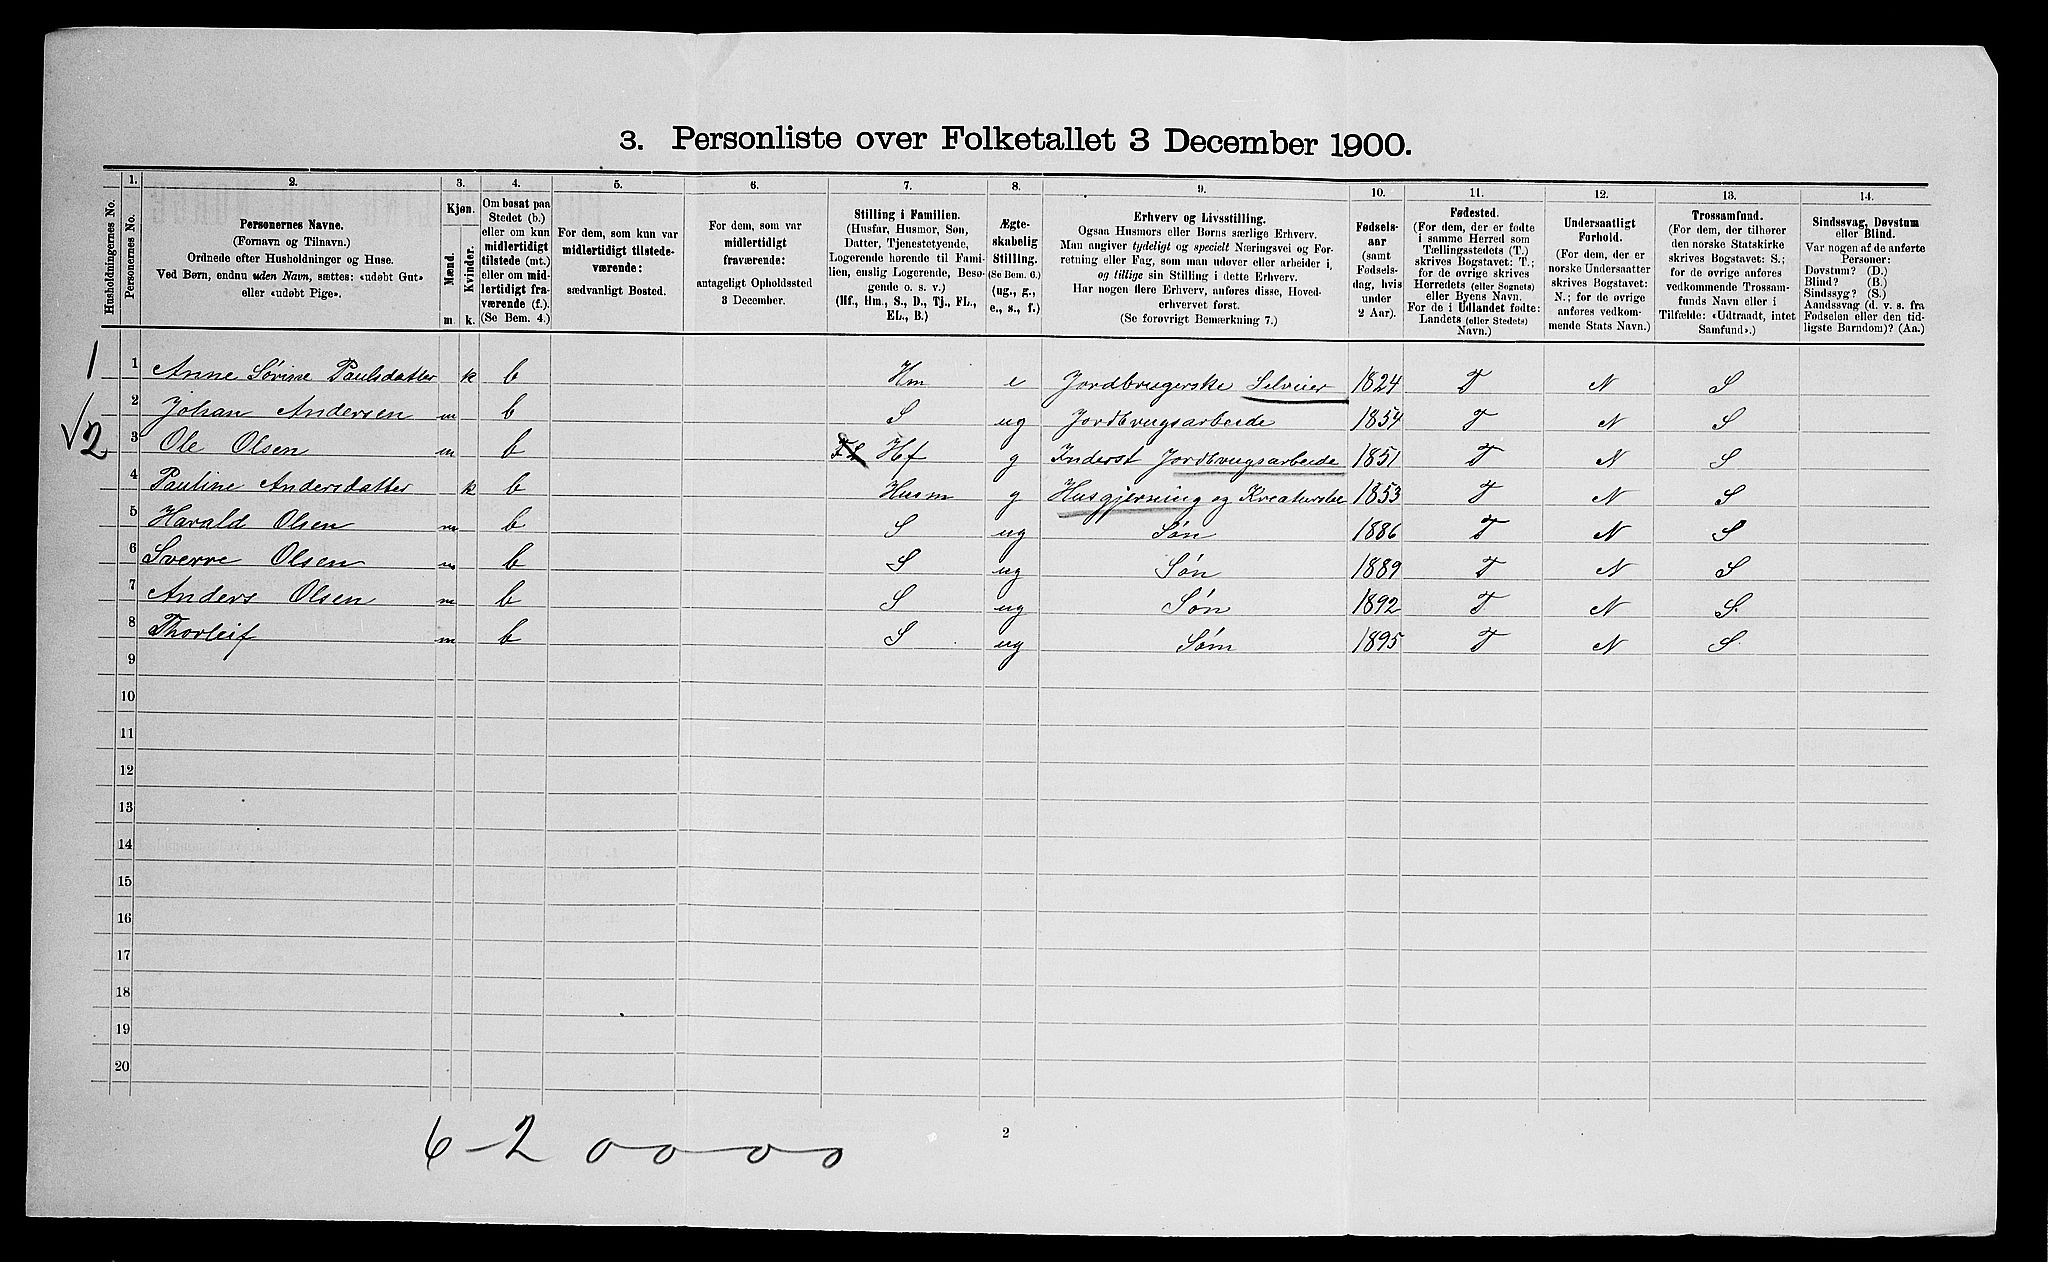 3. Personliste over Folketallet 3 December 1900.
Husholdningernes No.
1.
Personernes No.
2.
Personernes Navne.
(Fornavn og Tilnavn.)
Ordnede efter Husholdninger og Huse.
Ved Børn, endnu uden Navn, sættes: «udøbt Gut»
eller «udøbt Pige».
3.
Kjøn.
Mænd.
Kvinder.
m.
k.
4.
Om bosat paa
Stedet (b.)
eller om kun
midlertidigt
tilstede (mt.)
eller om mid-
lertidigt fra-
værende (f.).
(Se Bem. 4.)
5.
For dem, som kun var
midlertidigt tilstede-
værende:
sædvanligt Bosted.
6.
For dem, som var
midlertidigt
fraværende:
antageligt Opholdssted
3 December.
7.
Stilling i Familien.
(Husfar, Husmor, Søn,
Datter, Tjenestetyende,
Logerende hørende til Fami-
lien, enslig Logerende, Besø-
gende o. s. v.)
(Hf., Hm., S., D., Tj., FL.,
EL., B.)
8.
Ægte-
skabelig
Stilling.
(Se Bem. 6.)
(ug., g.,
e., s., f.)
9.
Erhverv og Livsstilling.
Ogsaa Husmors eller Børns særlige Erhverv.
Man angiver tydeligt og specielt Næringsvei og For-
retning eller Fag, som man udøver eller arbeider i,
og tillige sin Stilling i dette Erhverv.
Har nogen flere Erhverv, anføres disse, Hoved-
erhvervet først.
(Se forøvrigt Bemærkning 7.)
10.
Fødsels-
aar
(samt
Fødsels-
dag, hvis
under
2 Aar).
11.
Fødested.
(For dem, der er fødte
i samme Herred som
Tællingsstedets (T.)
skrives Bogstavet: T.;
for de øvrige skrives
Herredets (eller Sognets)
eller Byens Navn.
For de i Udlandet fødte:
Landets (eller Stedets)
Navn.)
12.
Undersaatligt
Forhold.
(For dem, der er
norske Undersaatter
skrives Bogstavet:
N.; for de øvrige
anføres vedkom-
mende Stats Navn.)
13.
Trossamfund.
(For dem, der tilhører
den norske Statskirke
skrives Bogstavet: S.;
for de øvrige anføres
vedkommende Trossam-
funds Navn eller i
Tilfælde: «Udtraadt, intet
Samfund».)
14.
Sindssvag, Døvstum
eller Blind.
Var nogen af de anførte
Personer:
Døvstum? (D.)
Blind? (B.)
Sindssyg? (S.)
Aandssvag (d. v. s. fra
Fødselen eller den tid-
ligste Barndom)? (Aa.)
1 1 Anne Sørine Paulsdatter k b Hm e Jordbrugerske Selveier 1824 T N S
2 Johan Andersen m b S ug Jordbrugsarbeide 1854 T N S
√2 3 Ole Olsen m b FL Hf g Inderst Jordbrugsarbeide 1851 T N S
4 Pauline Andersdatter k b Husm g Husgjerning og Kreaturstel 1853 T N S
5 Harald Olsen m b S ug Søn 1886 T N S
6 Sverre Olsen m b S ug Søn 1889 T N S
7 Anders Olsen m b S ug Søn 1892 T N S
8 Thorleif m b S ug Søn 1895 T N S
9
10
11
12
13
14
15
16
17
18
19
20
6-2 0 0 0 0
2